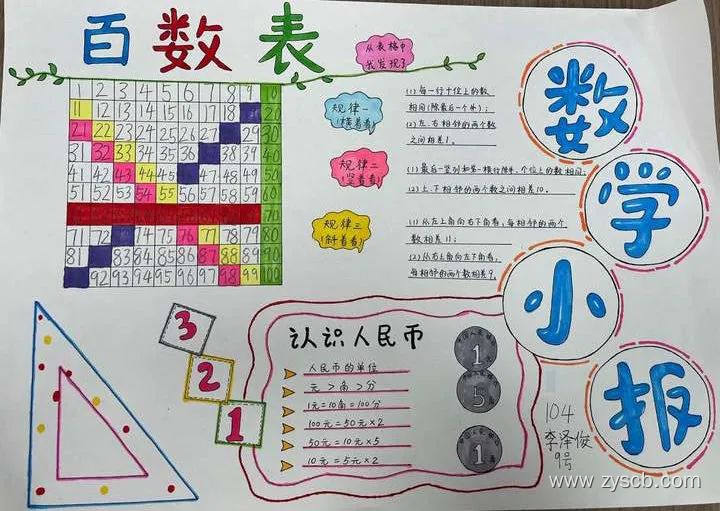 百数表
从表格中
我发现了
1 2 3 4 5 6 7 8 9 10
11 12 13 14 15 16 17 18 20
21 22 23 24 25 26 27 29 30
31 32 33 34 35 36 38 39 40
41 42 43 44 45 47 48 49 50
51 52 53 54 55 56 57 58 59 60
70
71 72 74 75 76 77 78 79 80
81 83 84 85 86 87 88 89 90
92 93 94 95 96 97 98 99 100
规律一
(横着看)
(1) 每一行十位上的数
相同(除最后一个外);
(2) 左、右相邻的两个数
之间相差1。
规律二
(竖着看)
(1) 最后一竖列和第一横行除外,个位上的数相同;
(2) 上、下相邻的两个数之间相差10。
规律三
(斜着看)
(1) 从左上角向右下角看,每相邻的两个
数相差11;
(2) 从右上角向左下角看,
每相邻的两个数相差9。
数学小报
3
2
1
认识人民币
人民币的单位
元>角>分
1元=10角=100分
100元=50元×2
50元=10元×5
10元=5元×2
1
5
1
104
李泽俊
9号
www.zyscb.com